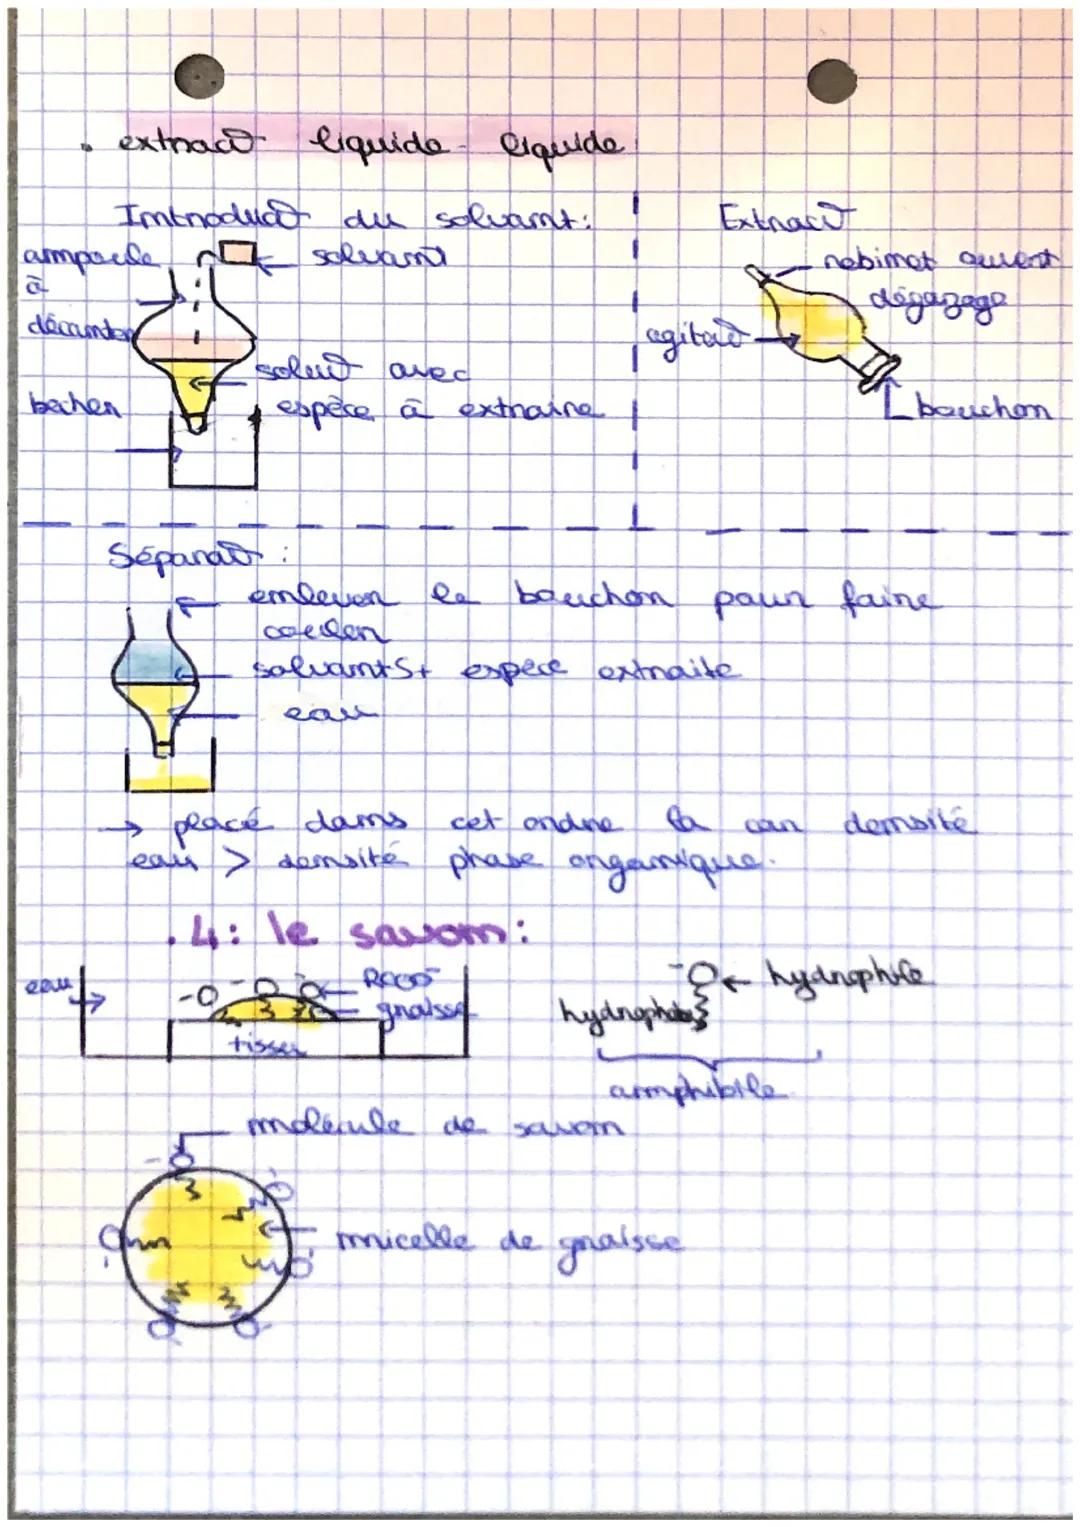 . extract° liquide - liquide
Introduct° du solvant:
ampoule
à
décanter
solvant
solut° avec
espèce à extraire
becher
Extract°
robinet ouvert
dégazage
agitat°
bouchon
Séparat° :
enlever le bouchon pour faire
couler
solvant S + espèce extraite
eau
→ placé dans cet ordre là car densité
eau > densité phase organique.
.4: le savon:
eau
RCOO⁻
graisse
tissu
hydrophile
hydrophobe
amphibile
molécule de savon
micelle de graisse